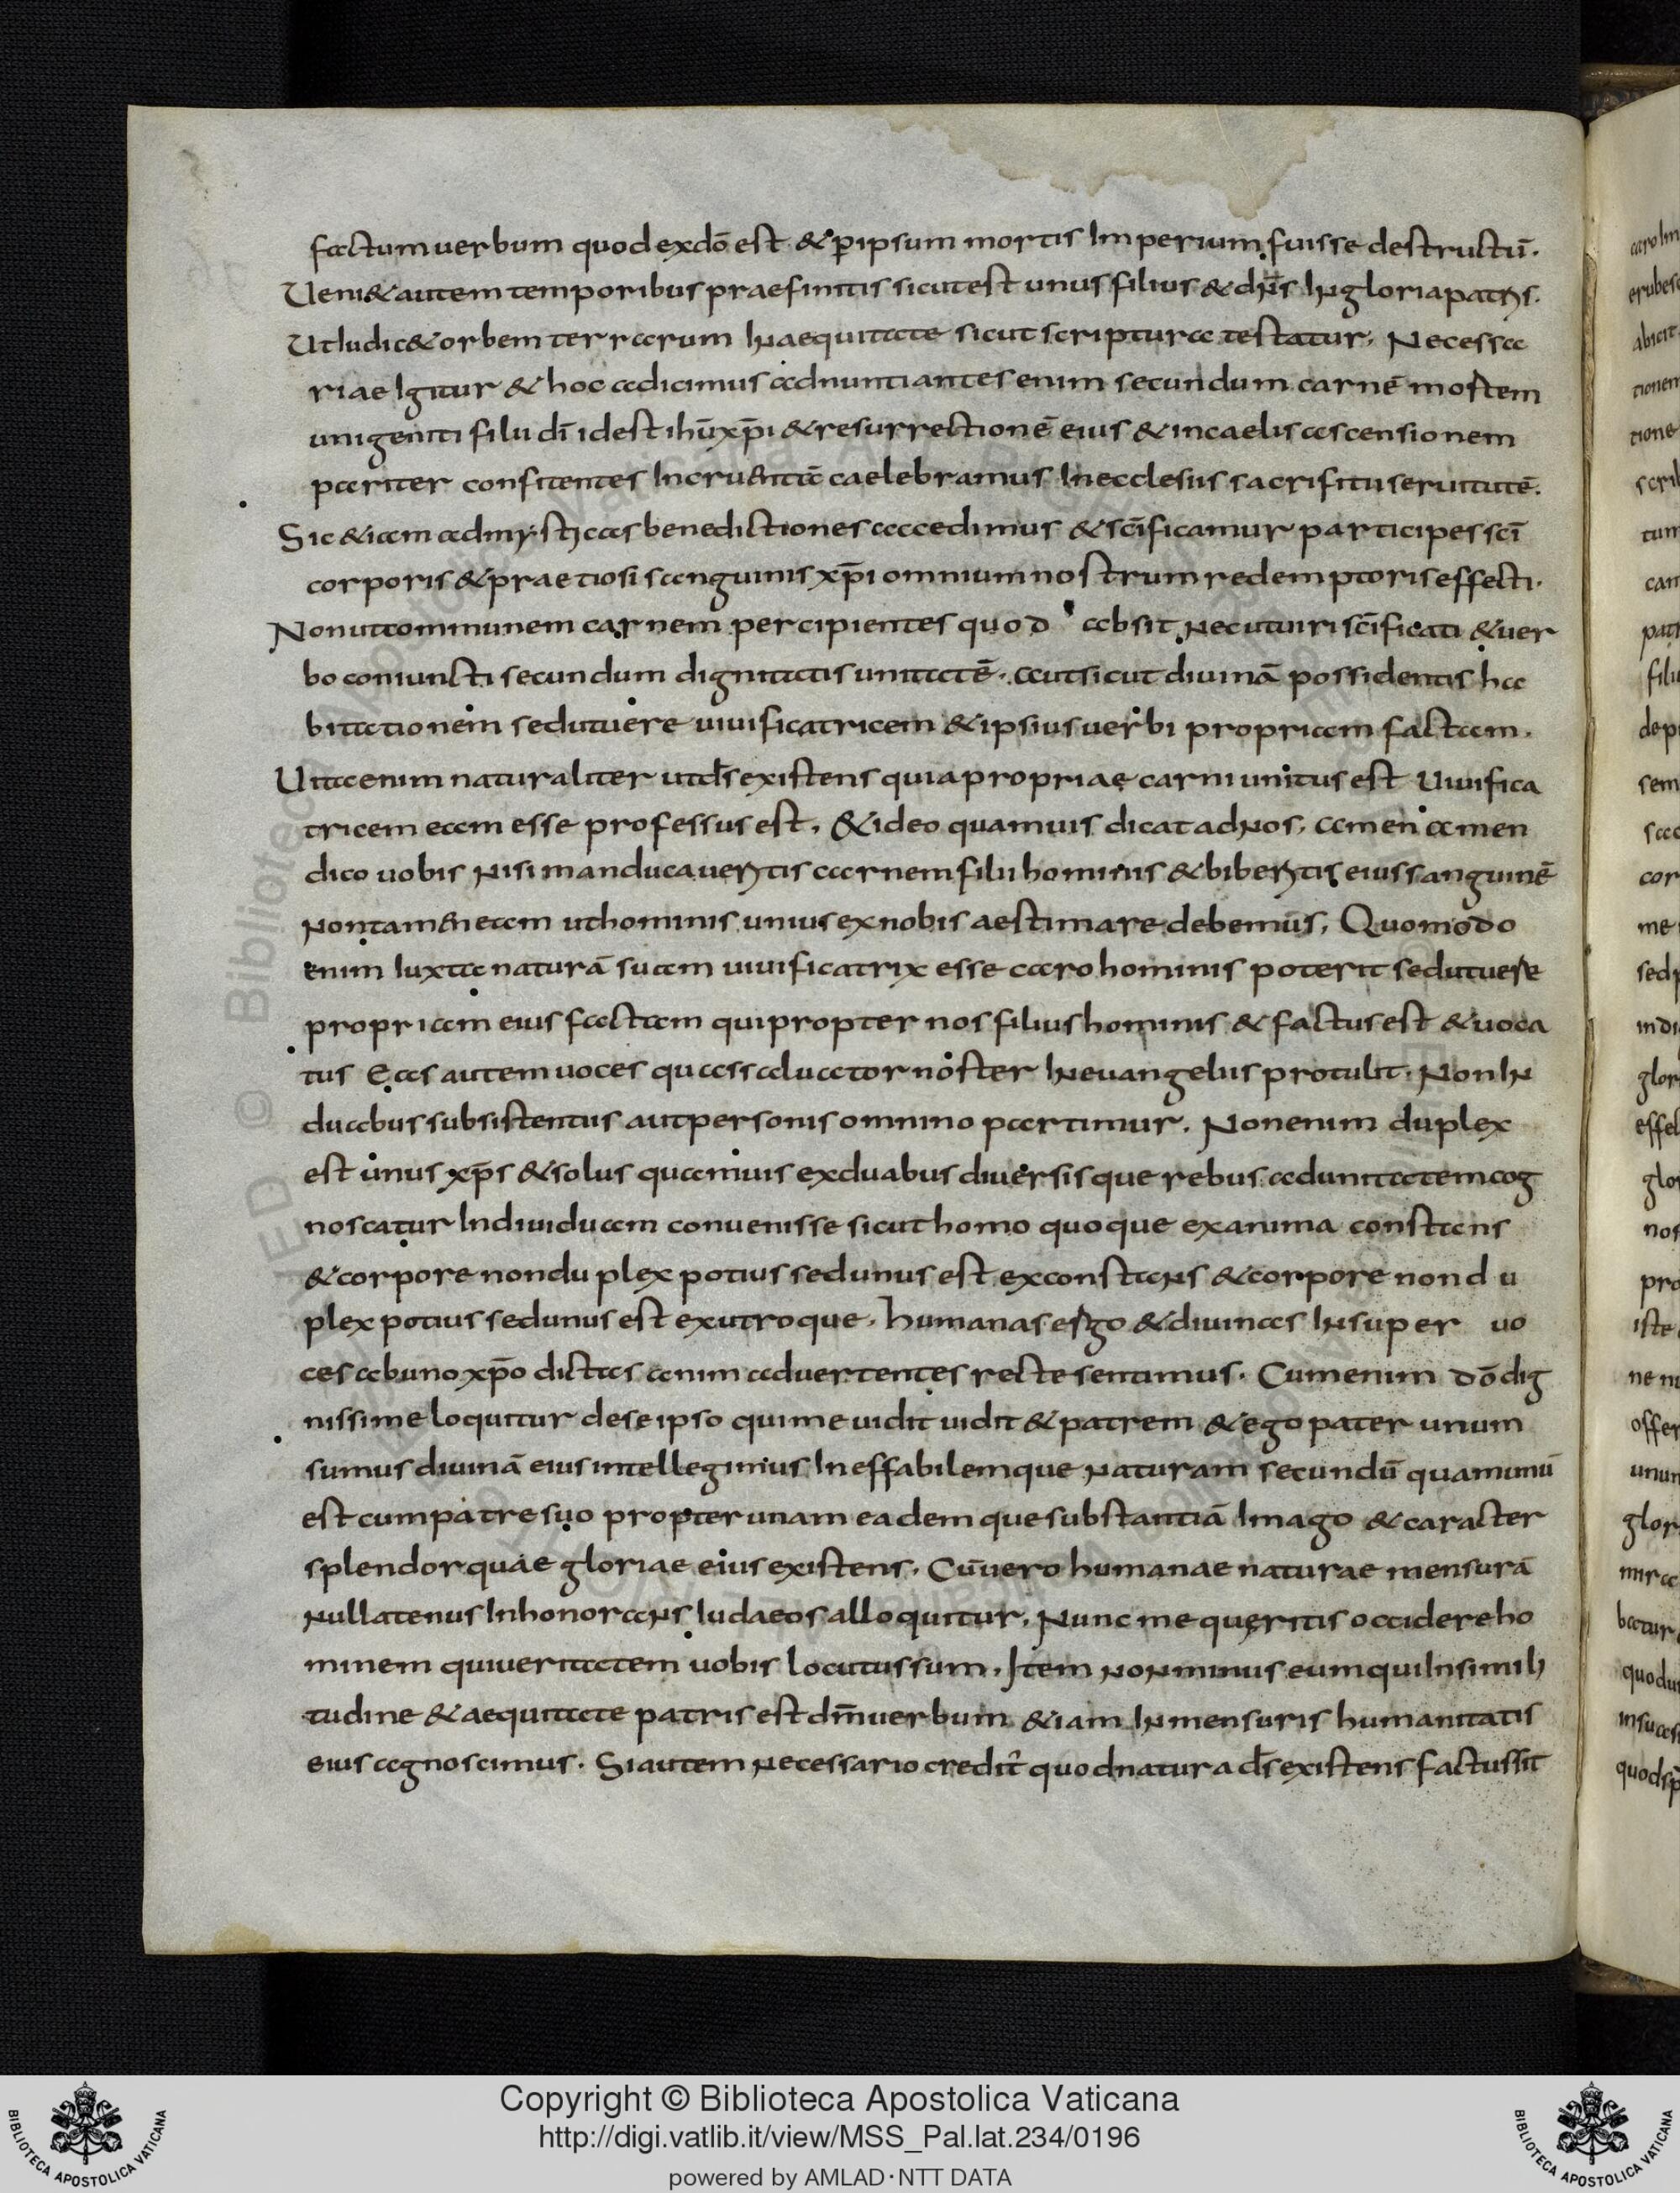 factum uerbum quod ex dō est & p ipsum mortis Imperium fuisse destructū.
Ueni& autem temporibus praefinitis sicut est unus filius & dn̄s In gloria patris.
Ut Iudic& orbem terrarum In aequitate sicut scriptura testatur. Necessa
riae Igitur & hoc adicimus adnuntiantes enim secundum carnē mortem
unigeniti filii dī id est ihū xp̄i & resurrectionē eius & in caelis ascensionem
pariter confitentes Incruentā caelebramus In ecclesiis sacrifitii seruitutē.
Sic &iam ad mysticas benedictiones accedimus & scīficamur participes scī
corporis & praetiosi sanguinis xp̄i omnium nostrum redemptoris effecti.
Non ut communem carnem percipientes quod absit Nec ut uiri scīficati & uer
bo coniuncti secundum dignitatis unitatē. aut sicut diuinā possidentis ha
bitationem sed ut uere uiuificatricem & ipsius uerbi propriam factam.
Uita enim naturaliter ut d̄s existens quia propriae carni unitus est Uiuifica
tricem eam esse professus est. & ideo quamuis dicat ad Nos. amen amen
dico uobis Nisi manducaueritis carnem filii hominis & biberitis eius sanguinē
Non tamen eam ut hominis unius ex nobis aestimare debemus. Quomodo
enim Iuxta naturā suam uiuificatrix esse caro hominis poterit sed ut uere
propriam eius factam qui propter nos filius hominis & factus est & uoca
tus Eas autem uoces quas saluator noster In euangeliis protulit. Non In
duabus subsistentiis aut personis omnino partimur. Non enim duplex
est unus xp̄s & solus quamuis ex duabus diuersisque rebus ad unitatem cog
noscatur Indiuiduam conuenisse sicut homo quoque ex anima constans
& corpore non duplex potius sed unus est ex constans & corpore non du
plex potius sed unus est ex utroque. humanas ergo & diuinas Insuper uo
ces ab uno xp̄o dictas anim aduertentes recte sentimus. Cum enim dō dig
nissime loquitur de se ipso qui me uidit uidit & patrem & ego pater unum
sumus diuinā eius intellegimus Ineffabilemque Naturam secundū quam unū
est cum patre suo propter unam eademque substantiā Imago & caracter
splendorquae gloriae eius existens. Cū uero humanae naturae mensurā
Nullatenus Inhonorans Iudaeos alloquitur. Nunc me queritis occidere ho
minem qui ueritatem uobis locutus sum. Item Non minus eum qui In simili
tudine & aequitate patris est dm̄ uerbum &iam In mensuris humanitatis
eius agnoscimus. Si autem Necessario credit̄ quod natura d̄s existens factus sit
Copyright © Biblioteca Apostolica Vaticana
http://digi.vatlib.it/view/MSS_Pal.lat.234/0196
powered by AMLAD·NTT DATA
BIBLIOTECA APOSTOLICA VATICANA
BIBLIOTECA APOSTOLICA VATICANA